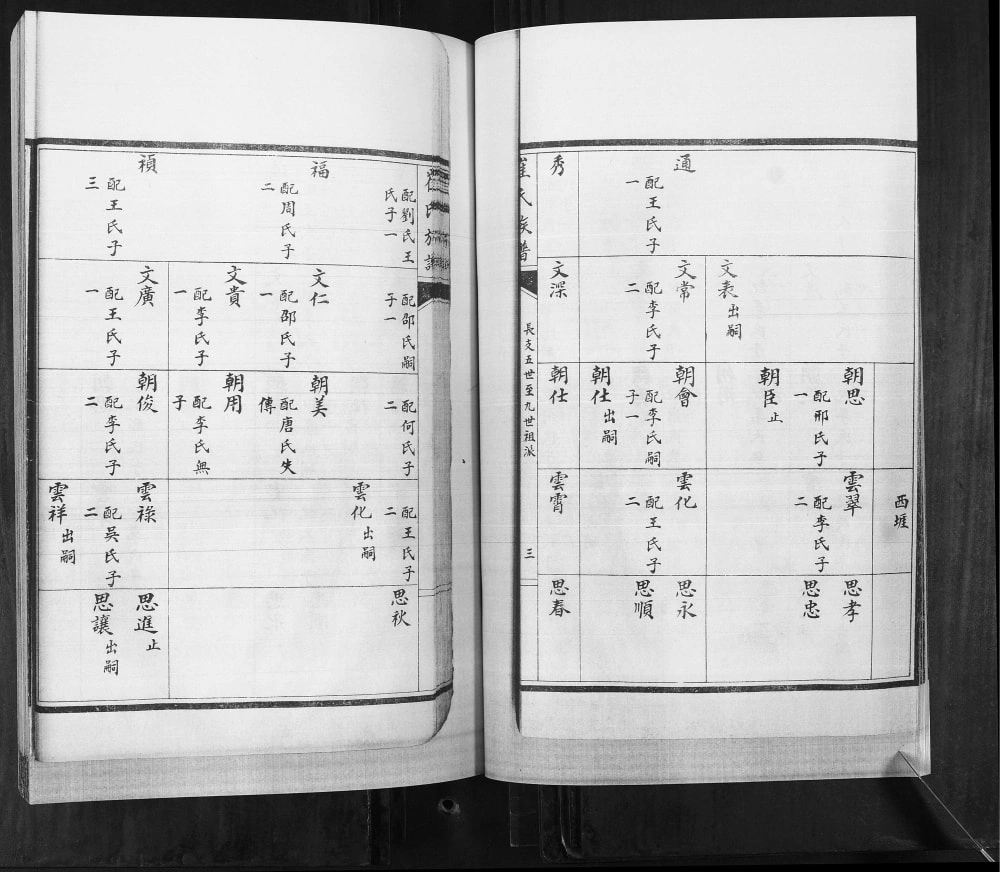 西堐
通
配王氏子
一
秀
文表出嗣
文常
配李氏子
二
文深
朝思
配邢氏子
一
朝臣止
朝會
配李氏嗣
子一
朝仕出嗣
朝仕
雲翠
配李氏子
二
雲化
配王氏子
二
雲霄
思孝
思忠
思永
思順
思春
崔氏族譜
長支五世至九世祖派
三
崔氏族譜
配劉氏王
氏子一
福
配周氏子
二
禎
配王氏子
三
配邵氏嗣
子一
文仁
配邵氏子
一
文貴
配李氏子
一
文廣
配王氏子
一
配何氏子
二
朝美
配唐氏失
傳
朝用
配李氏無
子
朝俊
配李氏子
二
配王氏子
二
雲化出嗣
雲祿
配吳氏子
二
雲祥出嗣
思秋
思進止
思讓出嗣